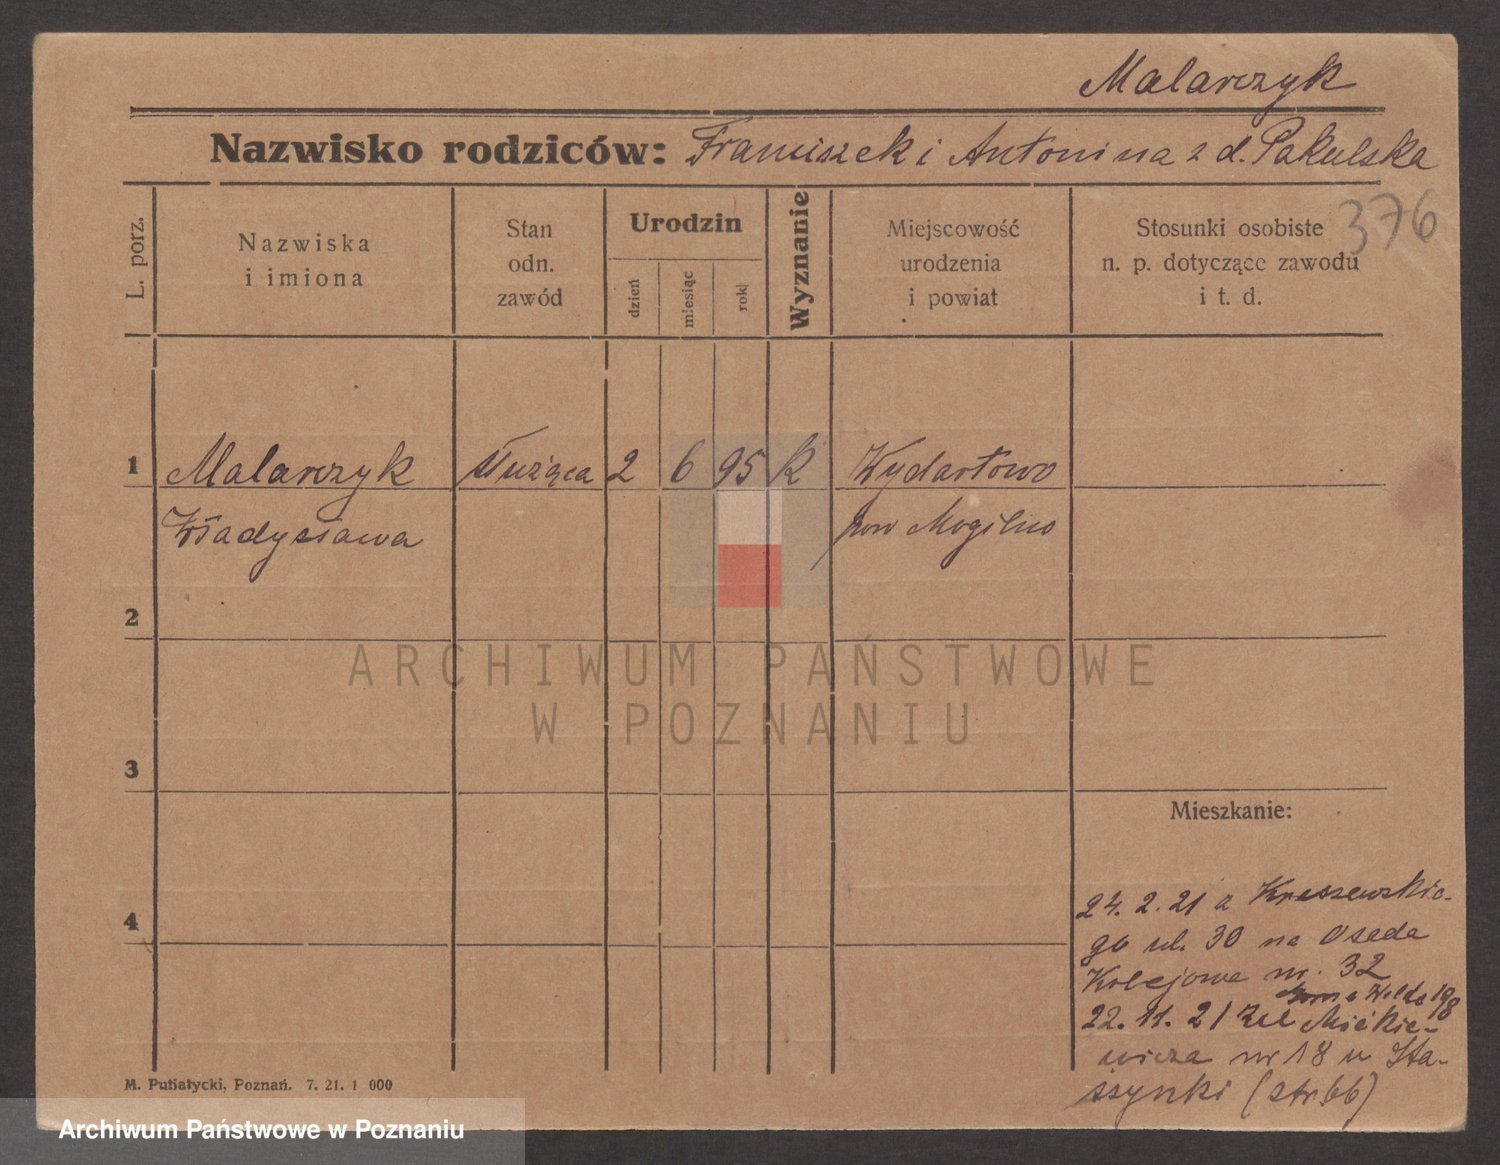 Malarczyk
Nazwisko rodziców: Franciszek i Antonina z d. Pakulska
376
L. porz.
Nazwiska
i imiona
Stan
odn.
zawód
Urodzin
dzień
miesiąc
rok
Wyznanie
Miejscowość
urodzenia
i powiat
Stosunki osobiste
n. p. dotyczące zawodu
i t. d.
1 Malarczyk służąca 2 6 95 k Wydartowo
Władysława pow Mogilno
2
3
4
Mieszkanie:
24. 2. 21 z Kraszewskie-
go ul. 30 na Osada
Kolejowa nr. 32
Górna Wilda 198
22. 11. 21 Mickie-
wicza nr 18 u Sta-
szynki (str 66)
M. Putiatycki, Poznań. 7. 21. 1 000
ARCHIWUM PAŃSTWOWE
W POZNANIU
Archiwum Państwowe w Poznaniu